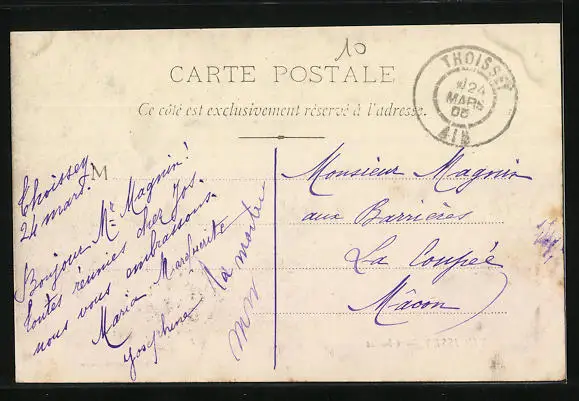 10
CARTE POSTALE
Ce côté est exclusivement réservé à l'adresse.
THOISSEY
24
MARS
05
AIN
M
Thoissey
24 mars.
Bonjour Mr Magnin!
toutes réunies chez Jos.
nous vous embrassons.
Maria Marguerite
Josephine
Monsieur Magnin
aux Barrières
La Coupée
Mâcon